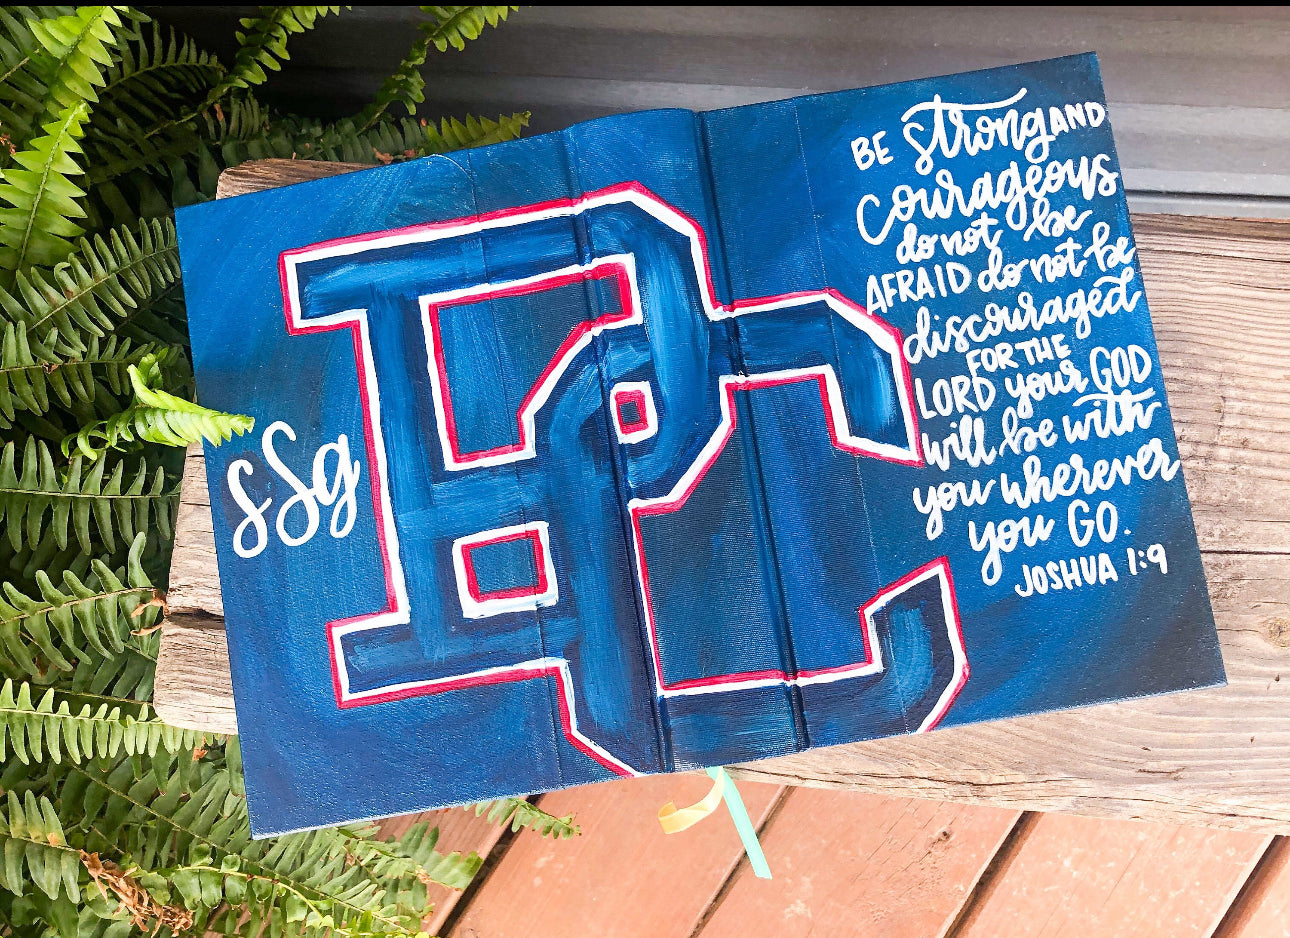 PC
sSg
BE strong AND
courageous
do not be
AFRAID do not be
discouraged
FOR THE
LORD your GOD
will be with
you wherever
you GO.
JOSHUA 1:9